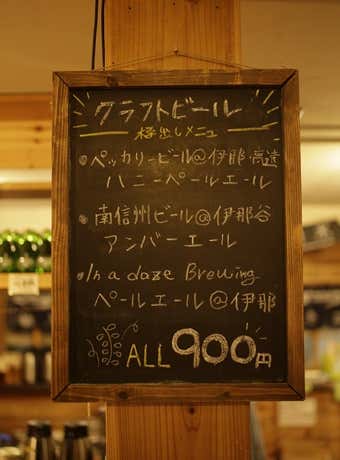 クラフトビール
樽出しメニュー
ペッカリービール@伊那・高遠
ハニーペールエール
南信州ビール@伊那谷
アンバーエール
In a daze Brewing
ペールエール@伊那
ALL 900円